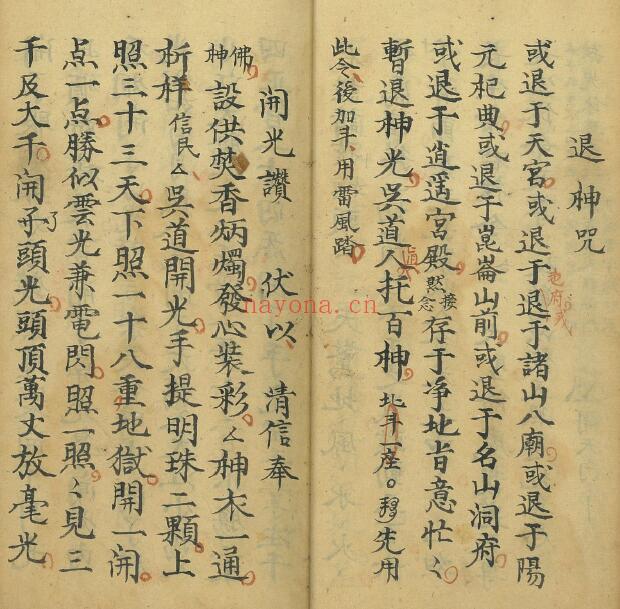 退神咒
或退于天宮或退于退于諸山八廟或退于陽
地府或
元杞典或退于崑崙山前或退于名山洞府
或退于逍遥宮殿默念接存于净地旨意忙〻
暫退神光吳道人托百神北斗一座。先用
真
此令後加斗用雷風踏
開光讚 伏以 清信奉
佛神設供焚香炳燭發心装彩〻神衣一通
祈样信民厶吳道開光手提明珠二顆上
照三十三天下照一十八重地獄開一開
点一点勝似雲光兼電閃照一照〻見三
千及大千開了子頭光頭頂萬丈放毫光
nayona.cn